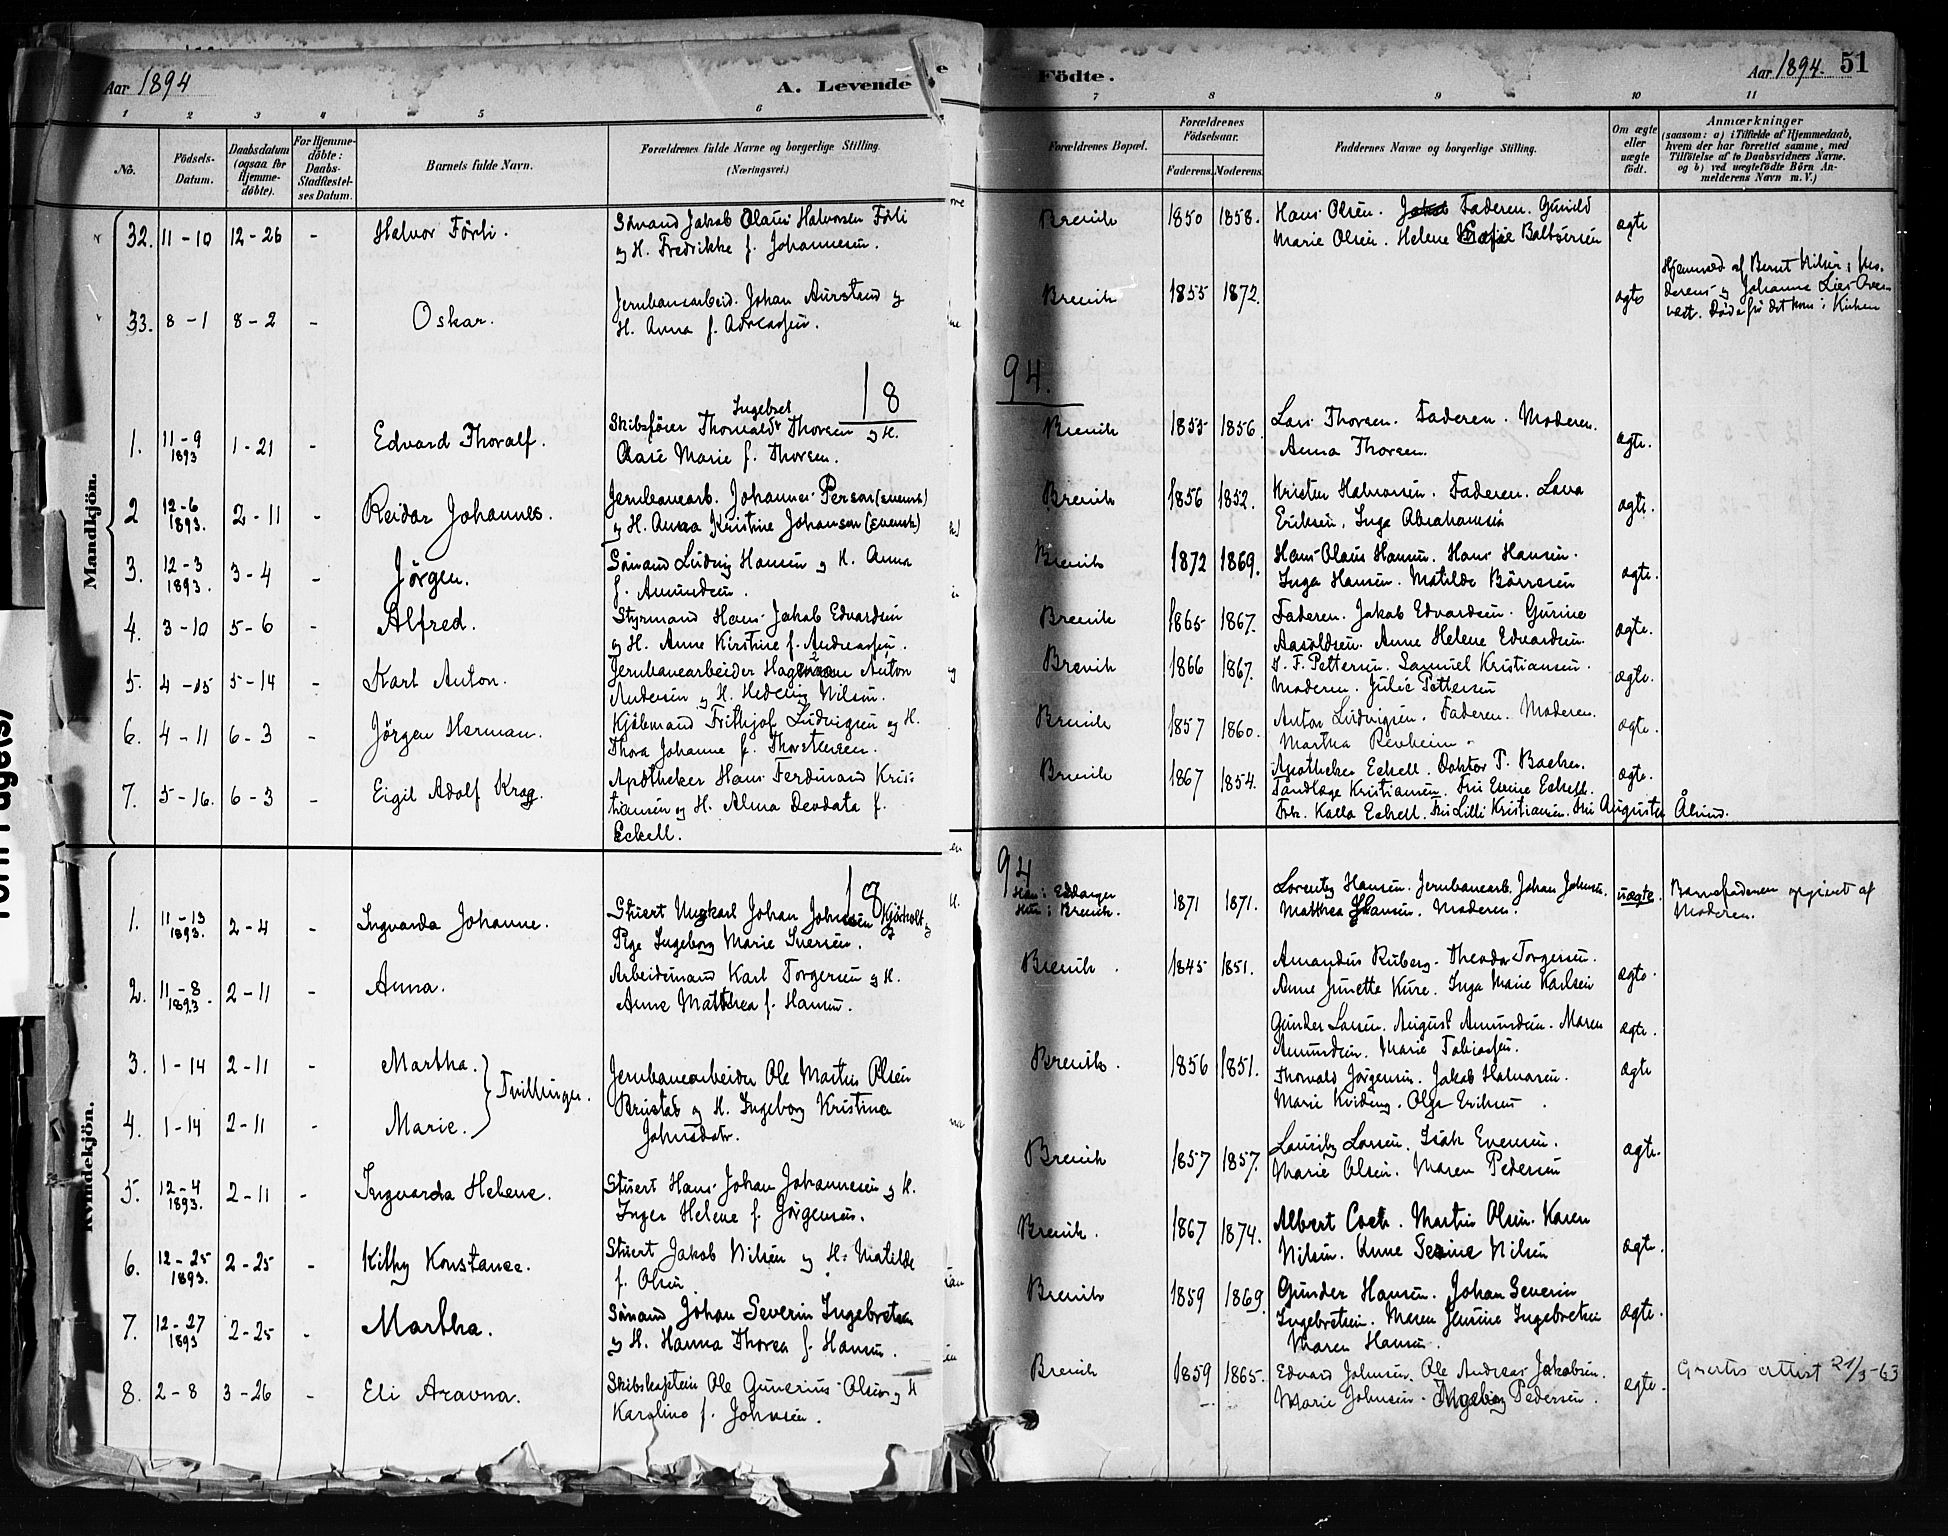 Aar 1894
A. Levende
Födte.
Aar 1894. 51
1 2 3 4 5 6 7 8 9 10 11
No.
Födsels-
Datum.
Daabsdatum
(ogsaa for
Hjemme-
döbte).
For Hjemme-
döbte:
Daabs-
Stadfæstel-
ses Datum.
Barnets fulde Navn.
Forældrenes fulde Navne og borgerlige Stilling.
(Næringsvei.)
Forældrenes Bopæl.
Forældrenes
Födselsaar.
Faderens. Moderens.
Faddernes Navne og borgerlige Stilling.
Om ægte
eller
uægte
födt.
Anmærkninger
(saasom: a) i Tilfælde af Hjemmedaab,
hvem der har forrettet samme, med
Tilföielse af to Daabsvidners Navne.
og b) ved uægtefödte Börn An-
melderens Navn m. V.)
Mandkjön.
32. 11-10 12-26 - Halvor Förli.
Sömand Jakob Olaus Halvorsen Förli
og H. Fredrikke f. Johannesen.
Brevik 1850 1858.
Hans Olsen. Faderen. Gunild
Marie Olsen. Helene Sofie Baltsersen
ægte
33. 8-1 8-2 - Oskar.
Jernbanearbeid. Johan Aurstad og
H. Anna f. Andreassen.
Brevik 1855 1872.
ægte
Hjemmed af Bernt Nilsen i
Johanne
Döde för det kom i Kirken
18
94.
1. 11-9 1893 1-21 - Edvard Thoralf.
Ingebret
Skibsförer Thorvald Thorsen og H.
Marie f. Thorsen.
Brevik 1855 1856.
Lars Thorsen. Faderen. Moderen.
Anna Thorsen.
ægte.
2 12-6 1893. 2-11 - Reidar Johannes.
Jernbanearb. Johannes Person (svensk)
og H. Anna Kristine Johanson (svensk)
Brevik 1856 1852.
Kristen Halvorsen. Faderen. Lava
Eriksen. Inga Abrahamsen
ægte.
3. 12-3 1893. 3-4 - Jörgen.
Sömand Ludvig Hansen og H. Anna
f. Amundsen.
Brevik 1872 1869.
Hans Olaus Hansen. Hans Hansen.
Inga Hansen. Matilde Börresen
ægte.
4. 3-10 5-6 - Alfred.
Styrmand Hans Jakob Edvardsen
og H. Anne Kirstine f. Andreassen.
Brevik 1865 1867.
Faderen. Jakob Edvardsen. Gurine
Aasoldsen. Anne Helene Edvardsen.
ægte.
5. 4-15 5-14 - Karl Anton.
Jernbanearbeider Anton
Andersen og H. Hedevig Nilsen.
Brevik 1866 1867.
J. F. Pettersen. Samuel Kristiansen.
Moderen. Julie Pettersen
ægte.
6. 4-11 6-3 - Jörgen Herman.
Kjölemand Frithjof Ludvigsen og H.
Thora Johanne f. Thorstensen.
Brevik 1857 1860.
Anton Ludvigsen. Faderen. Moderen.
Martha Revheim.
ægte.
7. 5-16. 6-3 - Eigil Adolf Krog.
Apotheker Hans Ferdinand Kris-
tiansen og H. Alma Deodata f.
Eckell.
Brevik 1867 1854.
Apotheker Eckell. Doktor P. Backer.
Tandlæge Kristiansen. Fru Evine Eckell.
Frk. Kalla Eckell. Fru Lilli Kristiansen. Fru Augusta Ålund.
ægte.
Kvindekjön.
18
94
1. 11-13 1893. 2-4 - Ingvarda Johanne.
Stuert Ungkarl Johan Johnsen Kjörholt og
Pige Ingeborg Marie Iversen.
Han: Eidanger
Hun: Brevik.
1871 1871.
Lorentz Hansen. Jernbanearb. Johan Johnsen.
Mathea Hansen. Moderen.
uægte.
Barnefaderen opgivet af
Moderen.
2. 11-8 1893. 2-11 - Anna.
Arbeidsmand Karl Torgersen og H.
Anne Mathea f. Hansen.
Brevik. 1845 1851.
Amandus Ruberg. Theodor Torgersen.
Anne Junette Kure. Inga Marie Karlsen
ægte.
3. 1-14 2-11 - Martha.
Tvillinger.
4. 1-14 2-11 - Marie.
Jernbanearbeider Ole Martin Olsen
Brustad og H. Ingeborg Kristina
Johnsdatr.
Brevik. 1856 1851.
Gunder Larsen. August Amundsen. Maren
Amundsen. Marie Tobiassen.
Thorvald Jörgensen. Jakob Halvorsen.
Marie Kviding. Olga Eriksen.
ægte.
ægte
5. 12-4 1893. 2-11 - Ingvarda Helene.
Stuert Hans Johan Johannesen og H.
Inger Helene f. Jörgensen.
Brevik 1857 1857.
Lauritz Larsen. Isak Evensen.
Marie Olsen. Maren Pedersen
ægte.
6. 12-25 1893. 2-25 - Kitty Konstance.
Stuert Jakob Nilsen og H. Matilde
f. Olsen
Brevik. 1867 1874.
Albert Coch. Martin Olsen. Karen
Nilsen. Anne Serine Nilsen
ægte.
7. 12-27 1893 2-25 - Martha.
Sömand Johan Severin Ingebretsen
og H. Hanna Thorea f. Hansen.
Brevik 1859 1869.
Gunder Hansen. Johan Severin
Ingebretsen. Maren Jensine Ingebretsen
Maren Hansen.
ægte.
8. 2-8 3-26 - Eli Aravna.
Skibskaptein Ole Gunerius Olsen og H
Karoline f. Johnsen.
Brevik 1859 1865.
Edvard Johnsen. Ole Andreas Jakobsen.
Marie Johnsen. Ingeborg Pedersen.
ægte.
Gratis attest 21/3-63